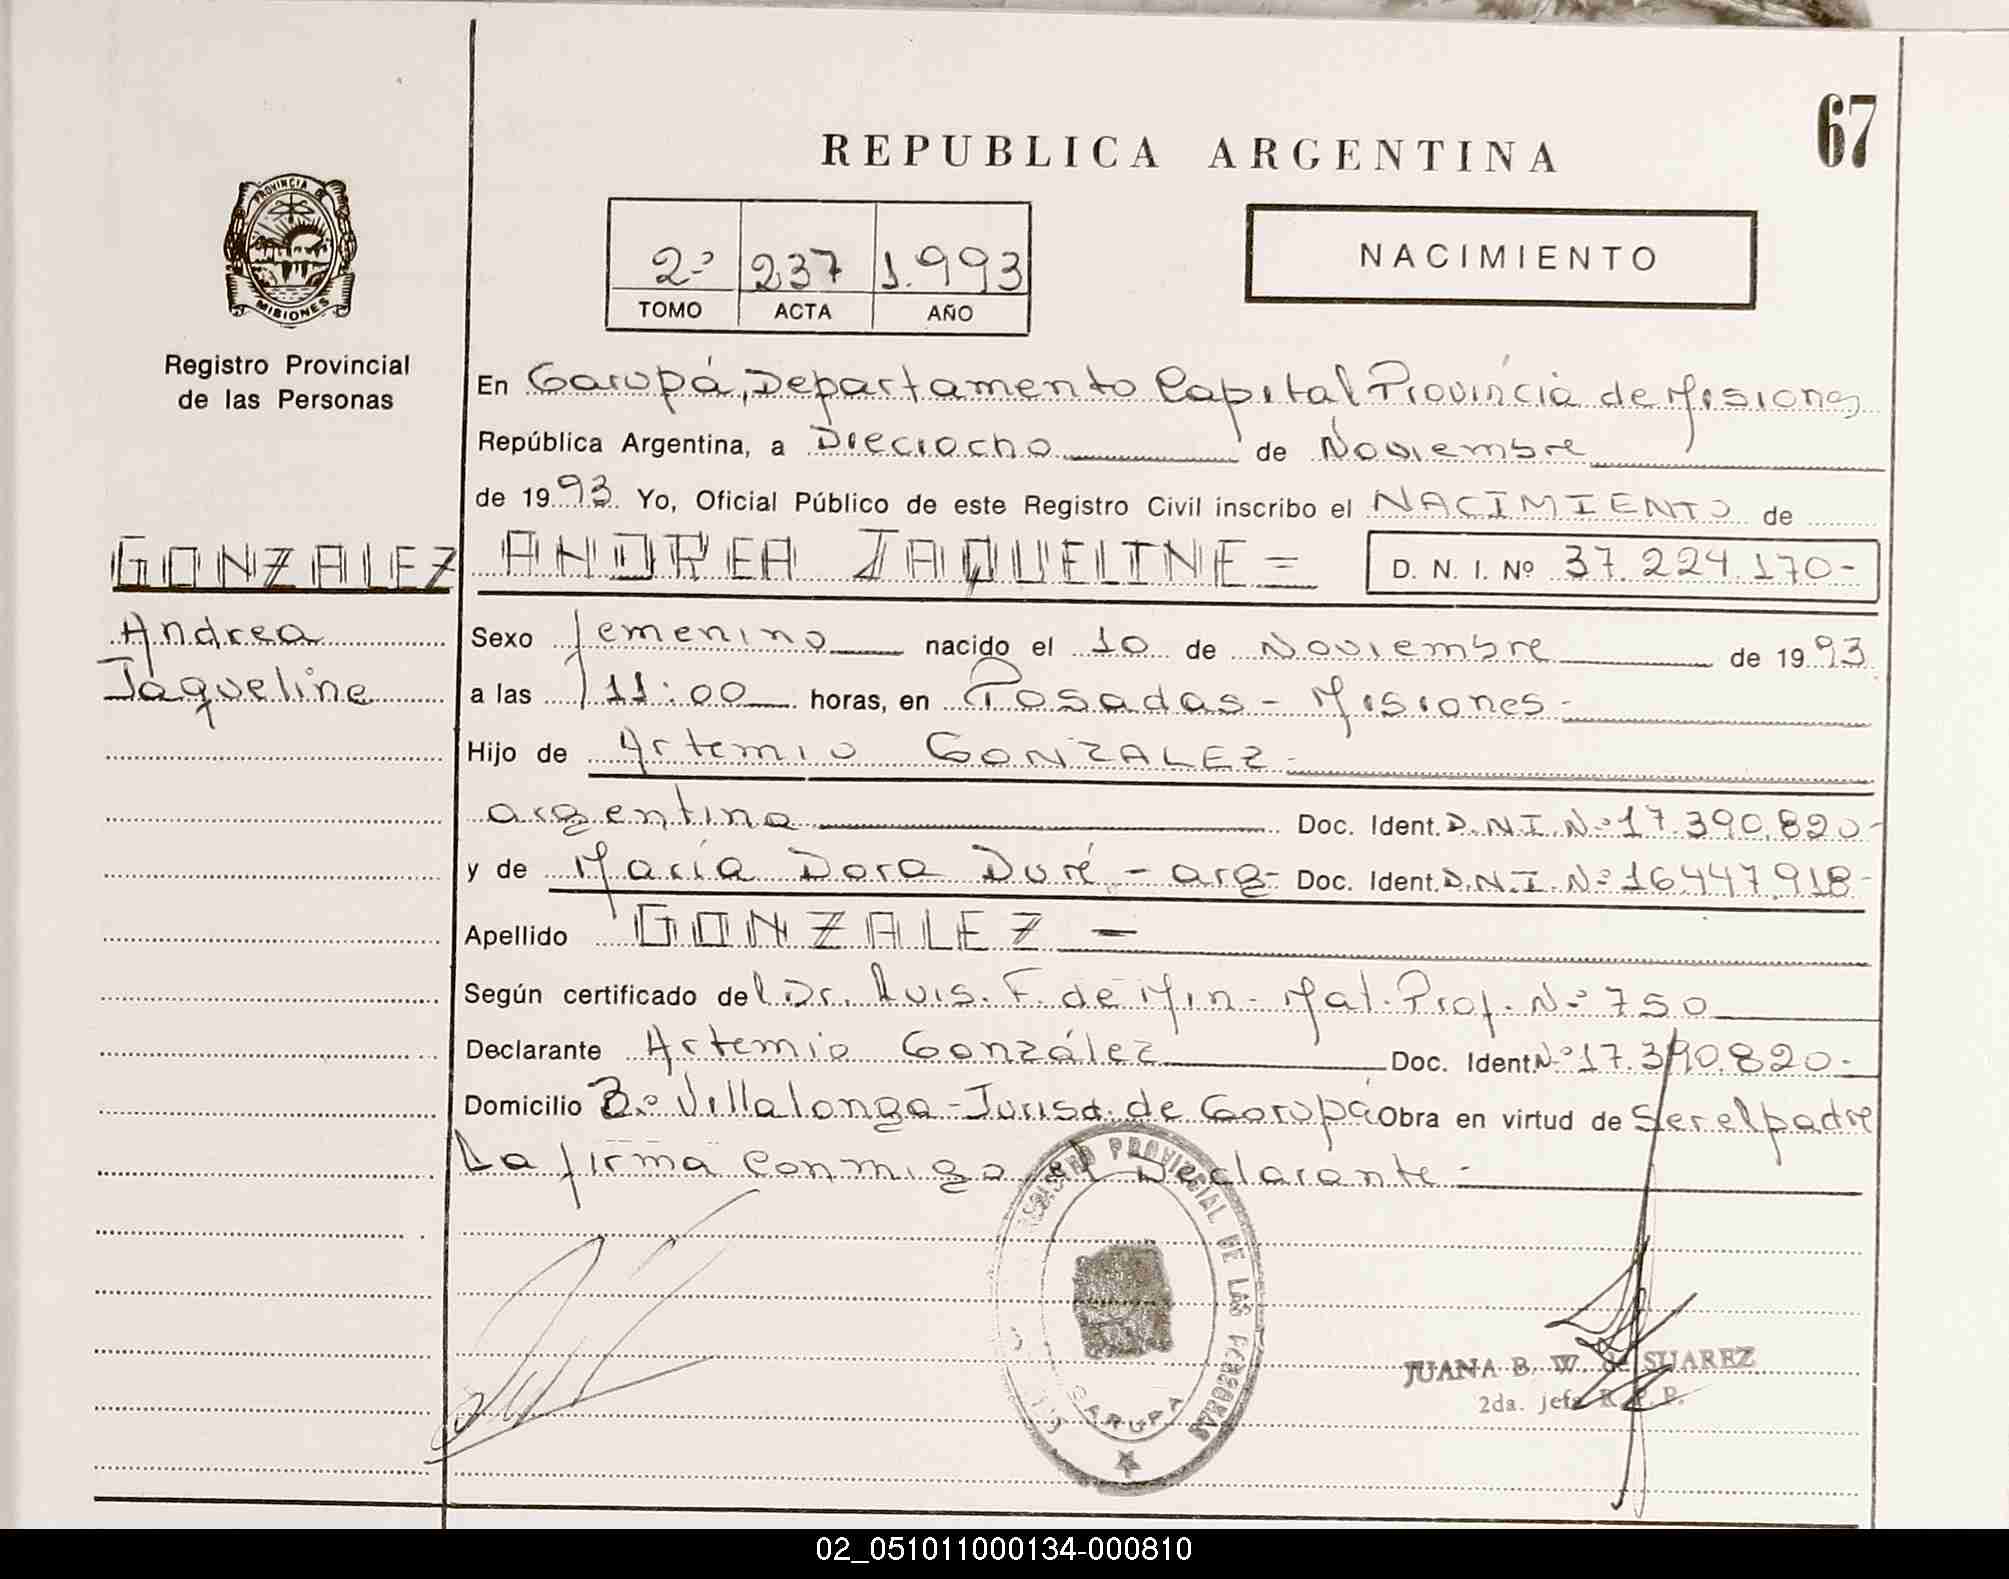 67
REPUBLICA ARGENTINA
PROVINCIA DE
MISIONES
Registro Provincial
de las Personas
2º 237 1.993
TOMO ACTA AÑO
NACIMIENTO
En Garupá, Departamento Capital Provincia de Misiones
República Argentina, a Dieciocho de Noviembre
de 1993 Yo, Oficial Público de este Registro Civil inscribo el NACIMIENTO de
GONZALEZ ANDREA JAQUELINE = D. N. I. Nº 37.224.170-
Andrea
Jaqueline
Sexo femenino nacido el 10 de Noviembre de 1993
a las 11:00 horas, en Posadas - Misiones -
Hijo de Artemio GONZALEZ -
argentino Doc. Ident. D.N.I. Nº 17.390.820-
y de María Dora Duré - arg- Doc. Ident. D.N.I. Nº 16.447.918-
Apellido GONZALEZ -
Según certificado del Dr. Luis. F. de Min - Mat. Prof. Nº 750
Declarante Artemio González Doc. Ident. Nº 17.390.820-
Domicilio Bº Villalonga - Jurisd. de Garupá Obra en virtud de Ser el padre
La firma Conmigo el Declarante -
REGISTRO PROVINCIAL DE LAS PERSONAS
GARUPA
JUANA B. W. de SUAREZ
2da. Jefe R. P. P.
02_051011000134-000810